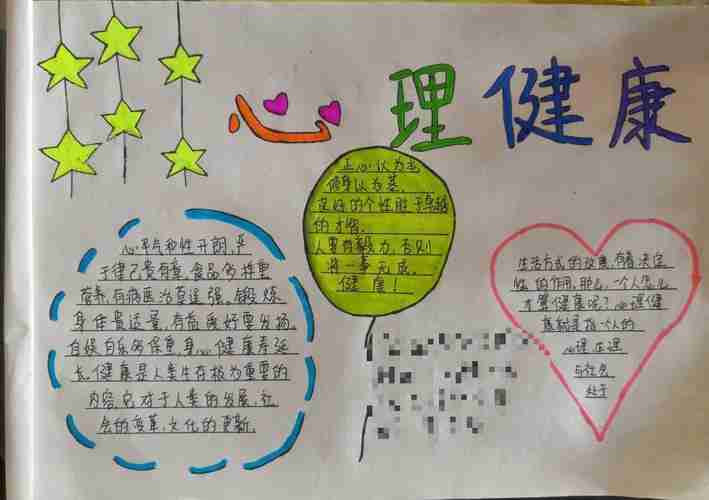 心理健康
正心以为本
修身以为基
良好的个性胜于卓越
的才智。
人要有毅力，否则
将一事无成。
健康！
心平气和性开朗，严
于律己贵自重，食品多样重
营养，有病医治莫逞强。锻炼
身体贵适量，有益爱好要发扬。
自娱自乐多保重，身心健康寿延
长。健康是人类生存极为重要的
内容，它对于人类的发展，社
会的变革，文化的更新，
生活方式的改变，有着决定
性的作用。那么，一个人怎么
才算健康呢？心理健
康就是指个人的
心理在理
与社会
处于